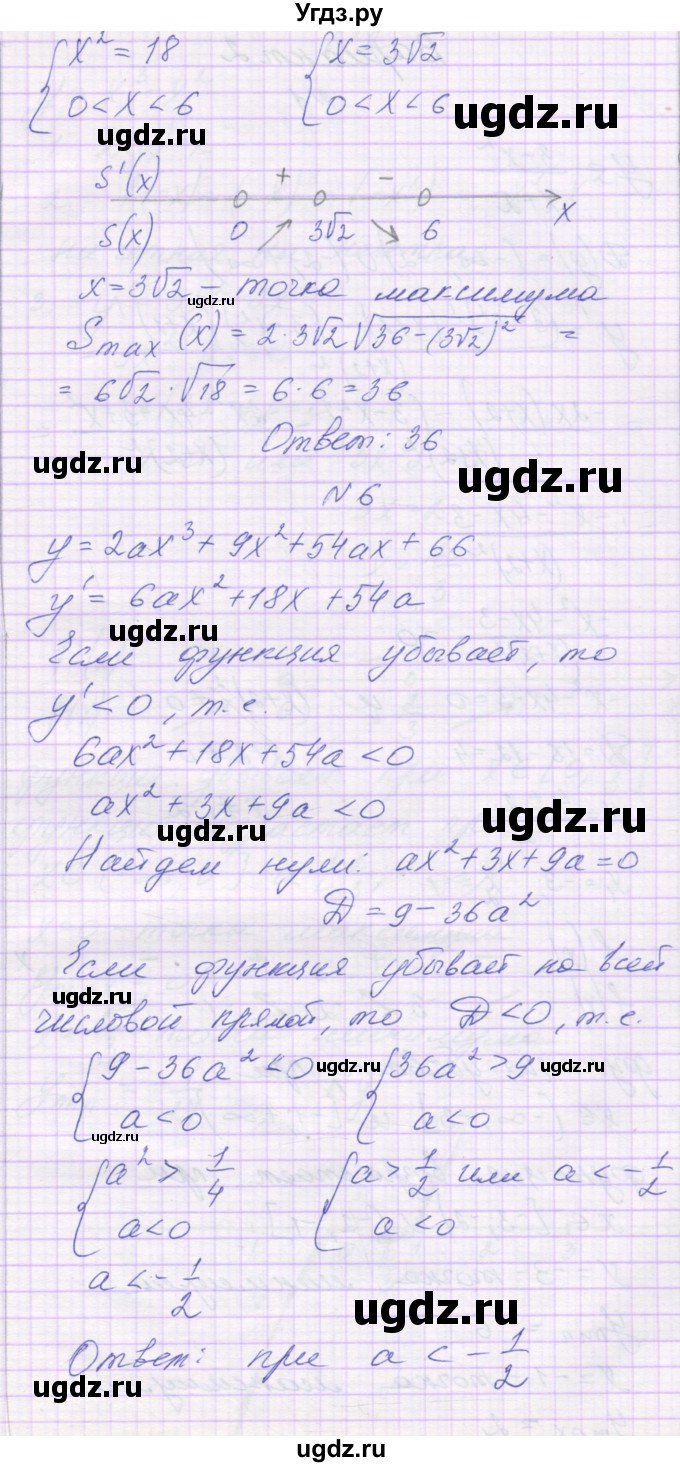 Угдз.ру
{x² = 18   {x = 3√2
{0 < x < 6   {0 < x < 6
ugdz.ru
ugdz.ru
S'(x)   +   −
x
S(x)   0 ↗ 3√2 ↘ 6
x = 3√2 – точка максимума
ugdz.ru
S max (x) = 2·3√2 √36-(3√2)² =
= 6√2 · √18 = 6·6 = 36
Ответ: 36
ugdz.ru
ugdz.ru
№6
y = 2ax³ + 9x² + 54ax + 66
y' = 6ax² + 18x + 54a
ugdz.ru
Если функция убывает, то
y' < 0, т.е.
6ax² + 18x + 54a < 0
ax² + 3x + 9a < 0
ugdz.ru
ugdz.ru
Найдем нули: ax² + 3x + 9a = 0
D = 9 - 36a²
Если функция убывает на всей
ugdz.ru
числовой прямой, то D < 0, т.е.
{9 - 36a² < 0   {36a² > 9
ugdz.ru
ugdz.ru
{a < 0   {a < 0
ugdz.ru
{a² > 1/4   {a > 1/2 или a < -1/2
{a < 0   {a < 0
a < -1/2
ugdz.ru
ugdz.ru
Ответ: при a < -1/2
ugdz.ru
ugdz.ru